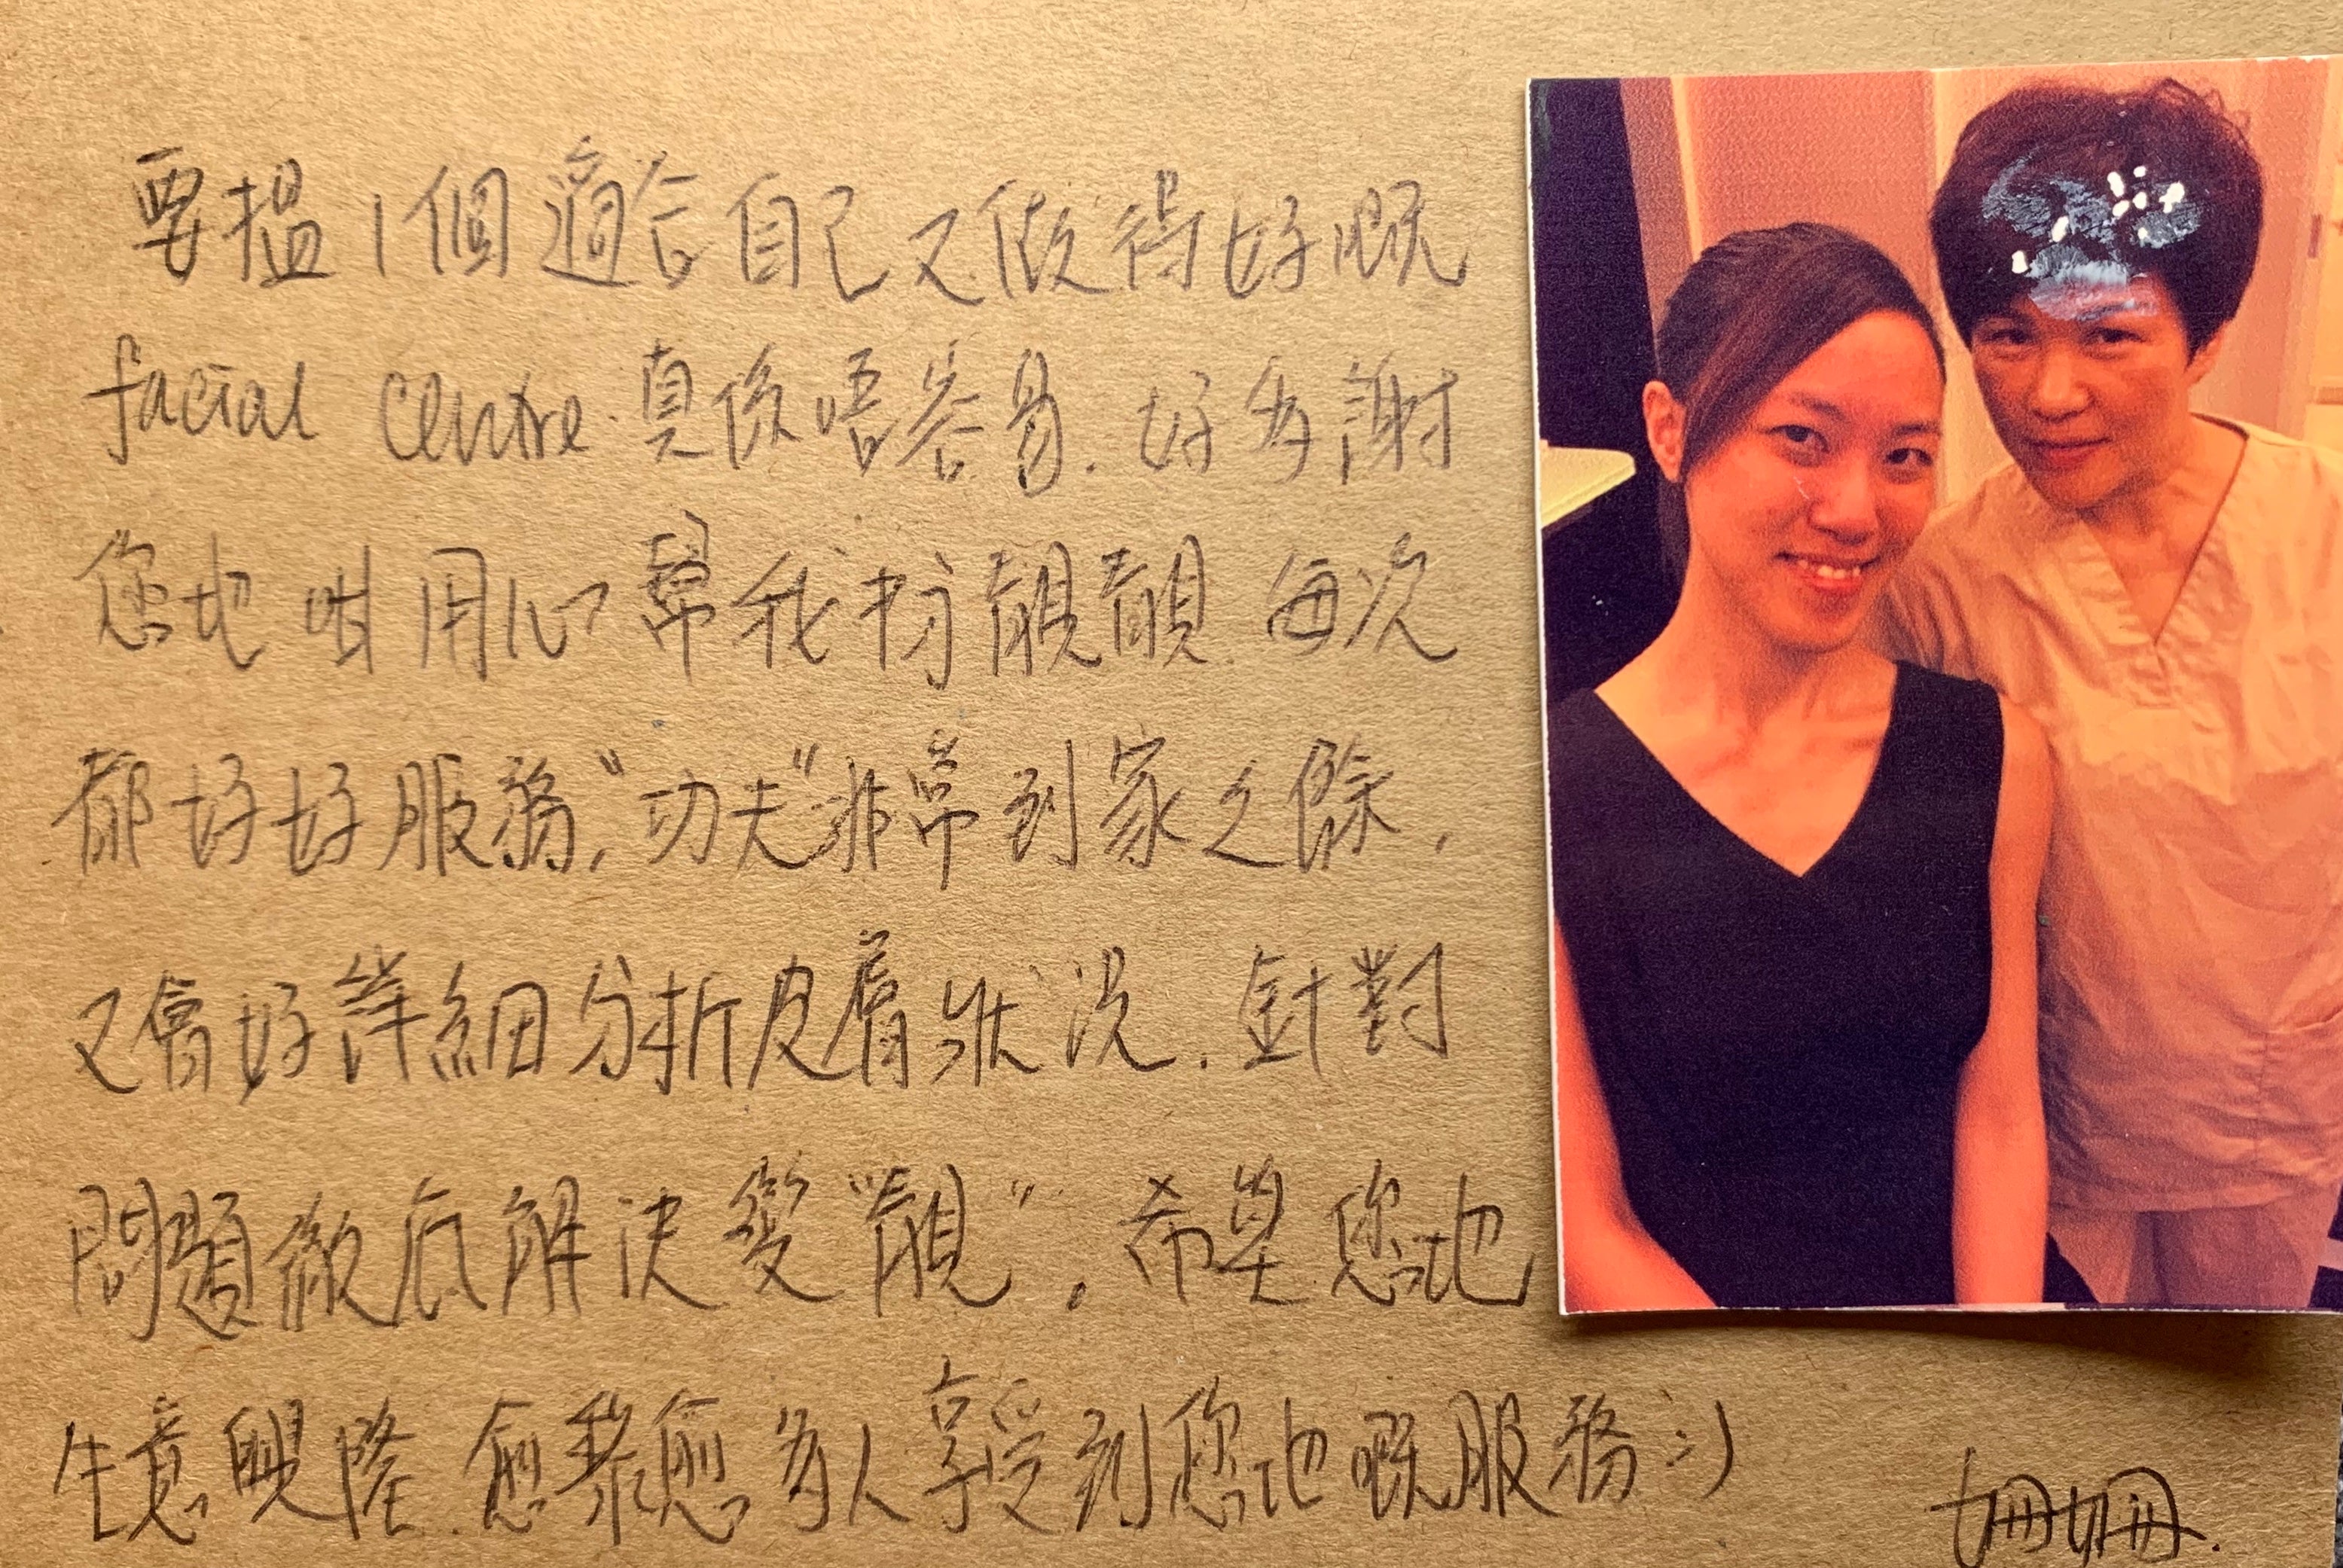 要搵1個適合自己又做得好嘅
facial centre 真係唔容易. 好多謝
您地咁用心幫我扮靚靚. 每次
都好好服務, "功夫"非常到家之餘,
又會好詳細分析皮膚狀況. 針對
問題徹底解決變"靚". 希望您地
生意興隆. 愈黎愈多人享受到您地嘅服務 :)
姍姍.